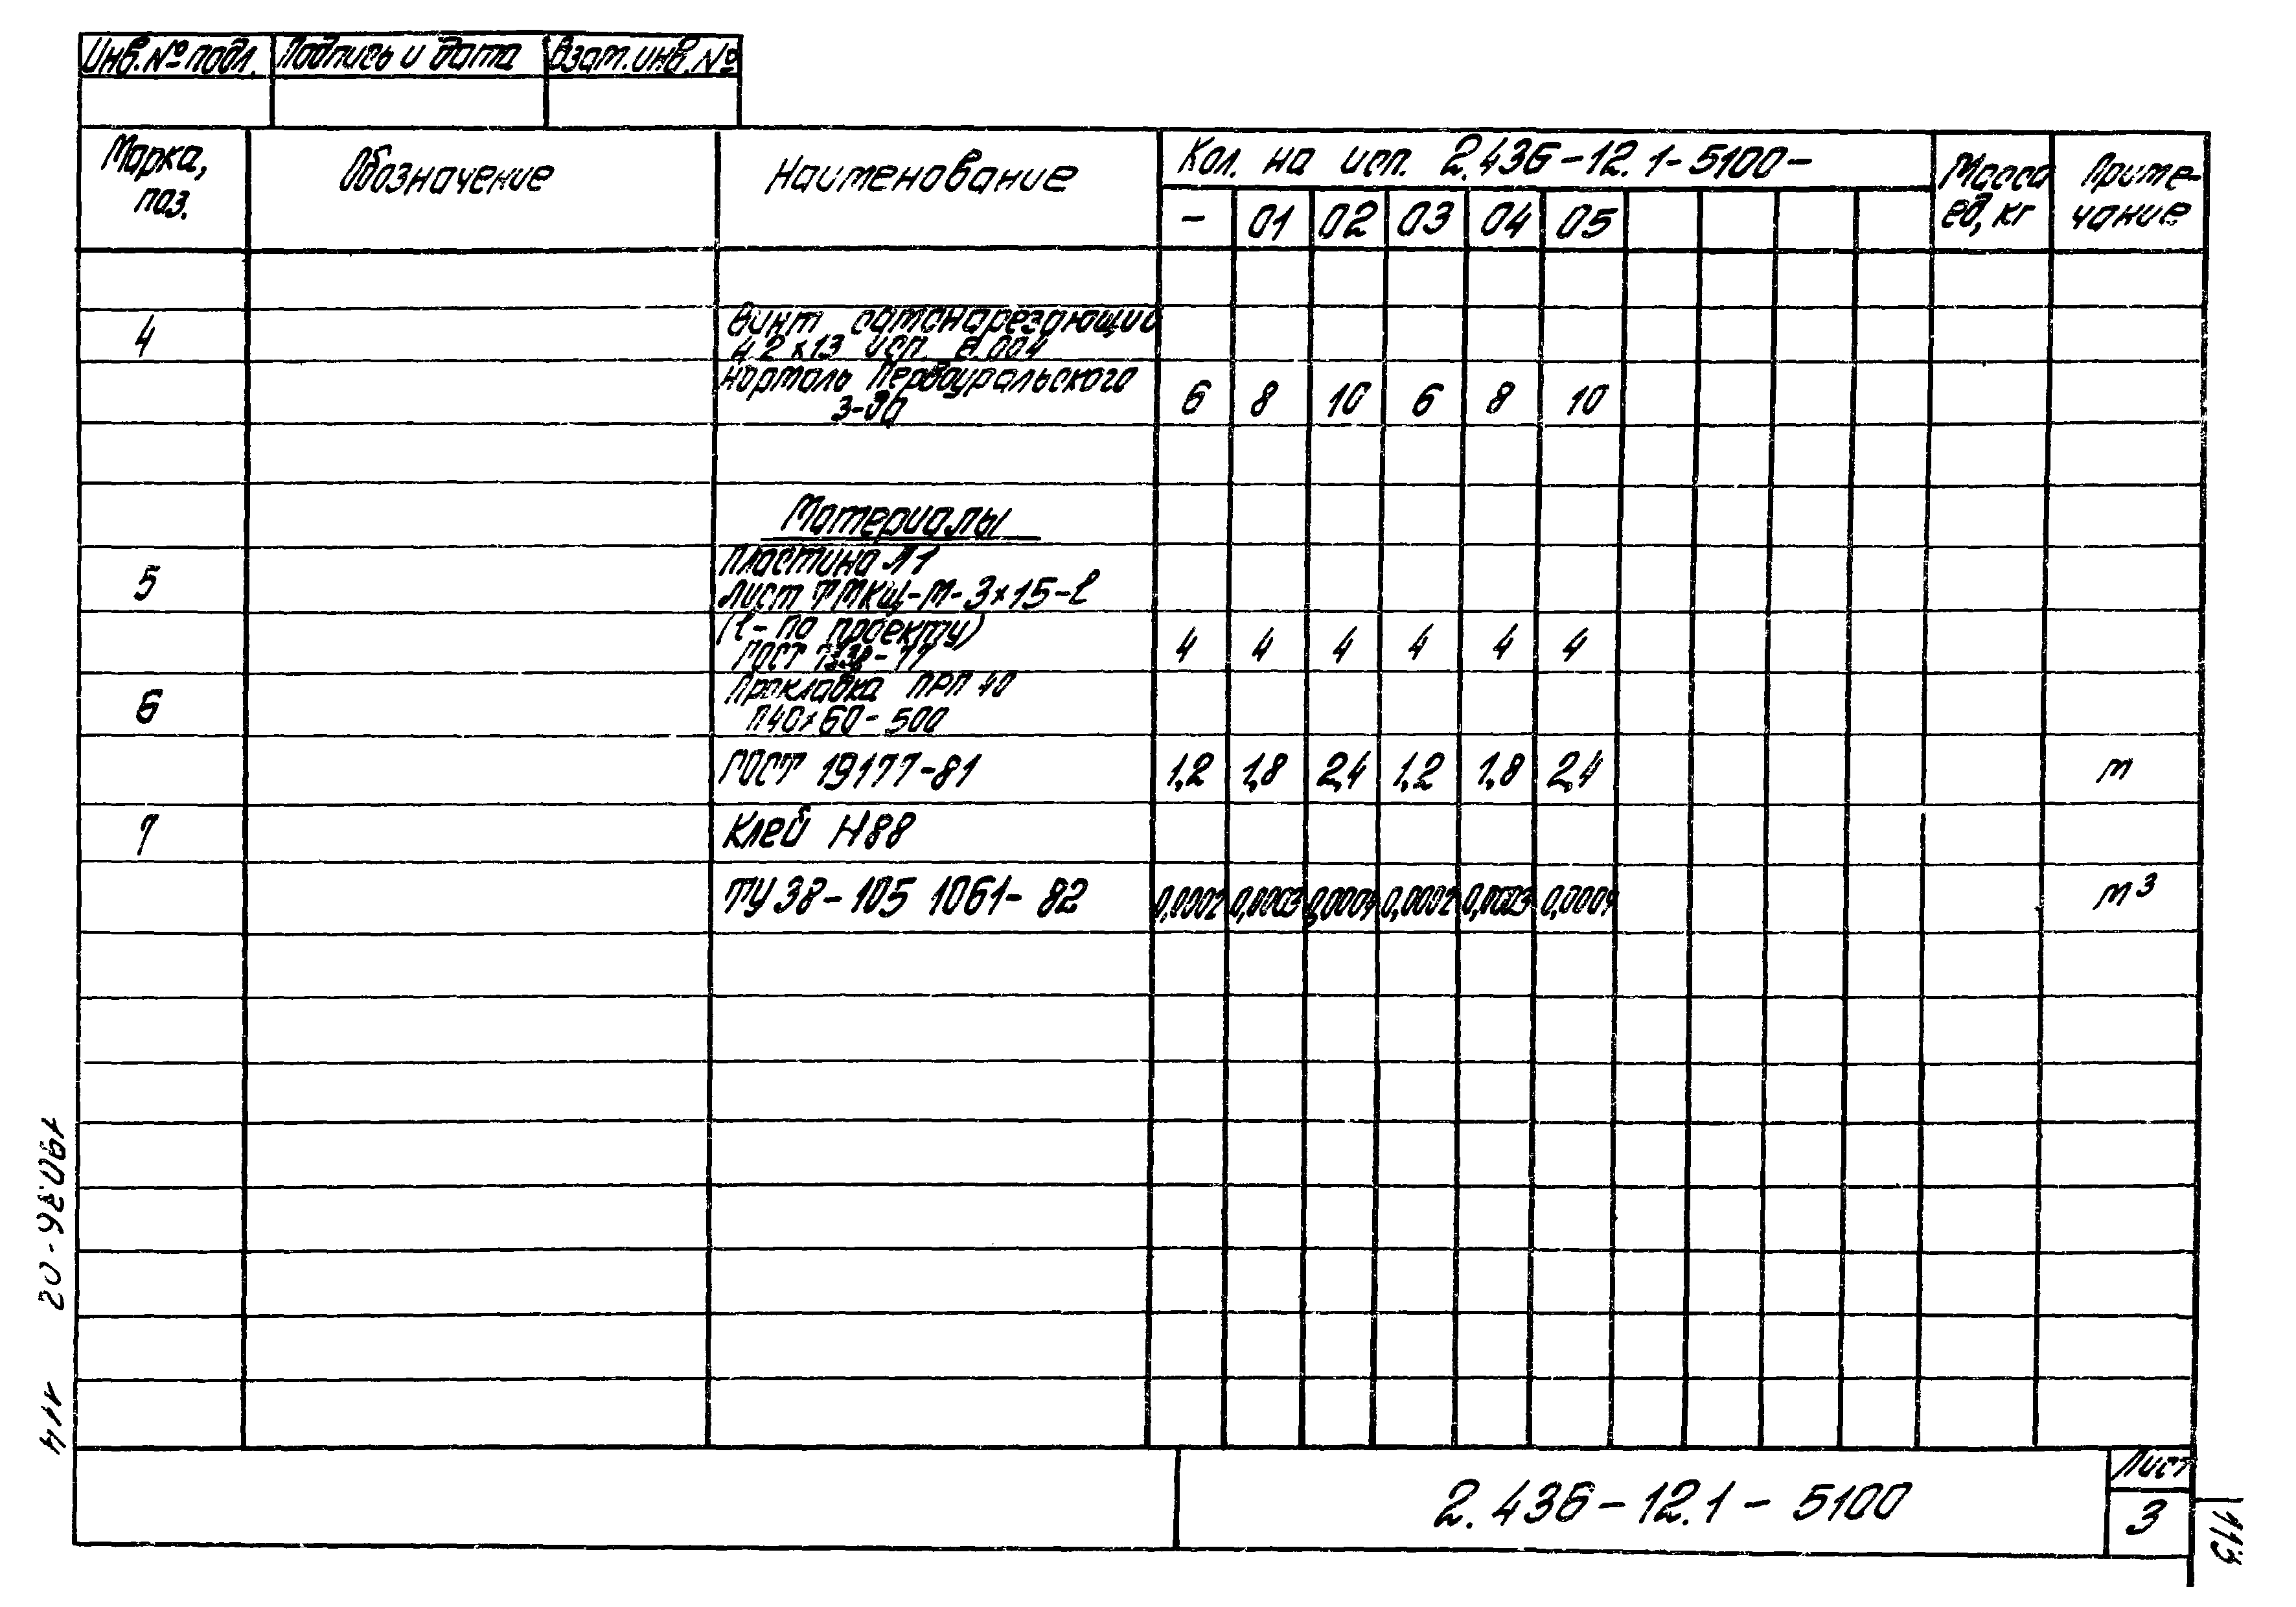 Инв.№ подл. Подпись и дата Взам.инв.№
Марка, поз. Обозначение Наименование Кол. на исп. 2.436-12.1-5100- Масса ед, кг Приме-чание
- 01 02 03 04 05
4 Винт самонарезающий
4,2х13 исп.
нормаль Первоуральского
з-да 6 8 10 6 8 10
Материалы
5 Пластина П1
лист ТМКЩ-М-3х15-ℓ
(ℓ- по проекту)
ГОСТ 7338-77 4 4 4 4 4 4
6 Прокладка ПРП 40
П40х60-500
ГОСТ 19177-81 1,2 1,8 2,4 1,2 1,8 2,4 м
7 Клей Н88
ТУ 38-105 1061-82 0,0002 0,0003 0,0004 0,0002 0,0003 0,0004 м³
2.436-12.1-5100
Лист
3
114
113